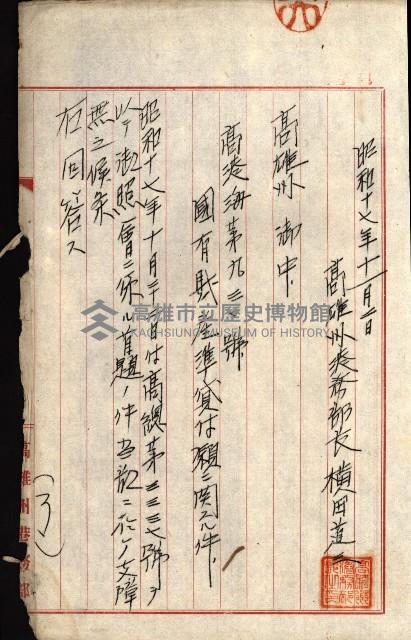 昭和十七年十一月二日
高雄州港務部長 橫田道三
高雄州 御中
高港海第九三三號
國有財產準貸付願ニ関スル件
昭和十七年十月三十日付高總第三三三七號ヲ
以テ御照會ニ係ル首題ノ件当部ニ於テ支障
無之候条
右回答ス
高雄州港務部
高雄市立歷史博物館
KAOHSIUNG MUSEUM OF HISTORY